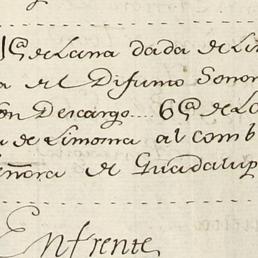 1@ de Lana dada de Lim
a el Difunto Sono
en Descargo.... 6@ de La
a de Limosna al comb
eñora de Guadalup
Enfrente